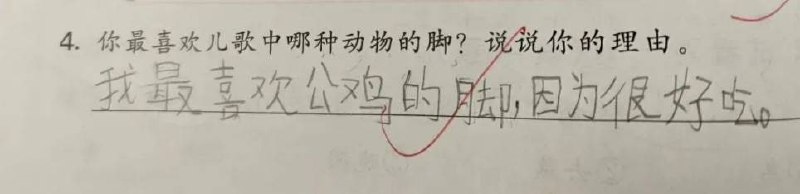 4. 你最喜欢儿歌中哪种动物的脚？说说你的理由。
我最喜欢公鸡的脚,因为很好吃。